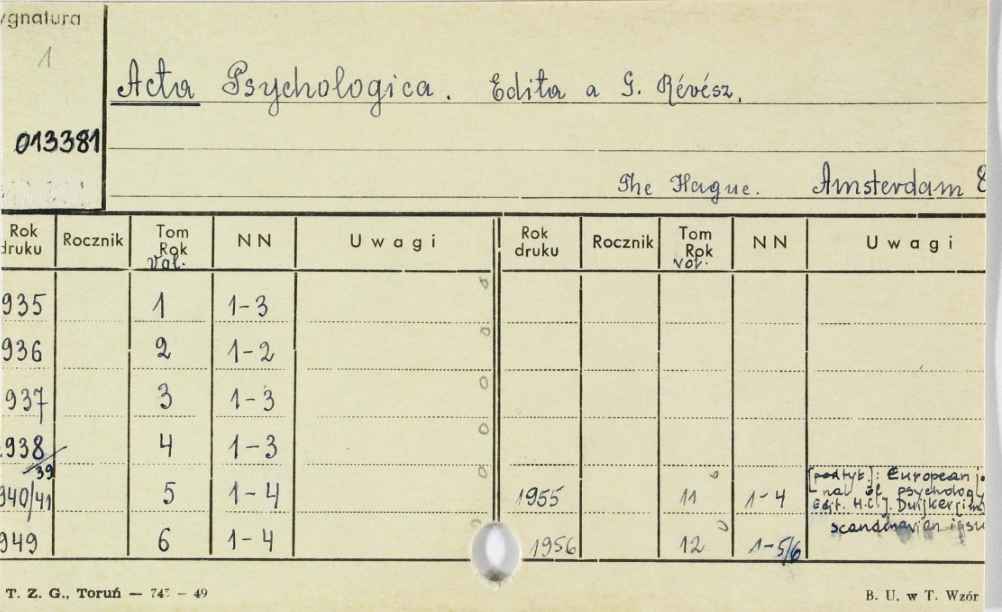 ygnatura
1
Acta Psychologica. Edita a G. Révész.
013381
The Hague. Amsterdam
Rok druku Rocznik Tom Rok Vol. NN Uwagi Rok druku Rocznik Tom Rok Vol. NN Uwagi
935 1 1-3
936 2 1-2
937 3 1-3
938/39 4 1-3
940/41 5 1-4 1955 11 1-4 [podtyt.]: European
nal of psychology
Edit. H.C.J. Duijker
949 6 1-4 1956 12 1-5/6 scandinavian
T. Z. G., Toruń — 49
B. U. w T. Wzór